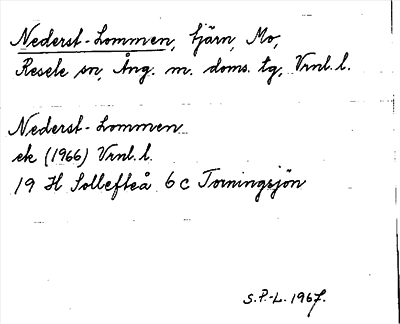 Nederst-Lommen, tjärn, Mo,
Resele sn, Ång. m. doms. tg, Vrnl. l.
Nederst-Lommen
ek (1966) Vrnl. l.
19 H Sollefteå 6 c Torningsjön
S.P.-L. 1967.